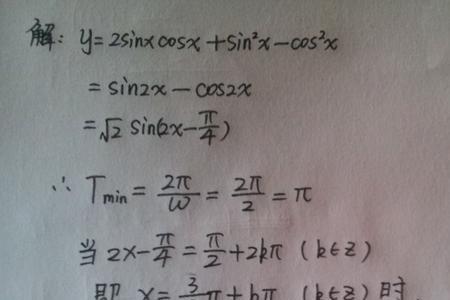 解: y=2sinxcosx+sin²x-cos²x
=sin2x-cos2x
=√2 sin(2x-π/4)
∴ Tmin=2π/ω=2π/2=π
当 2x-π/4=π/2+2kπ (k∈z)
即 x=3/π+kπ (k∈z) 时